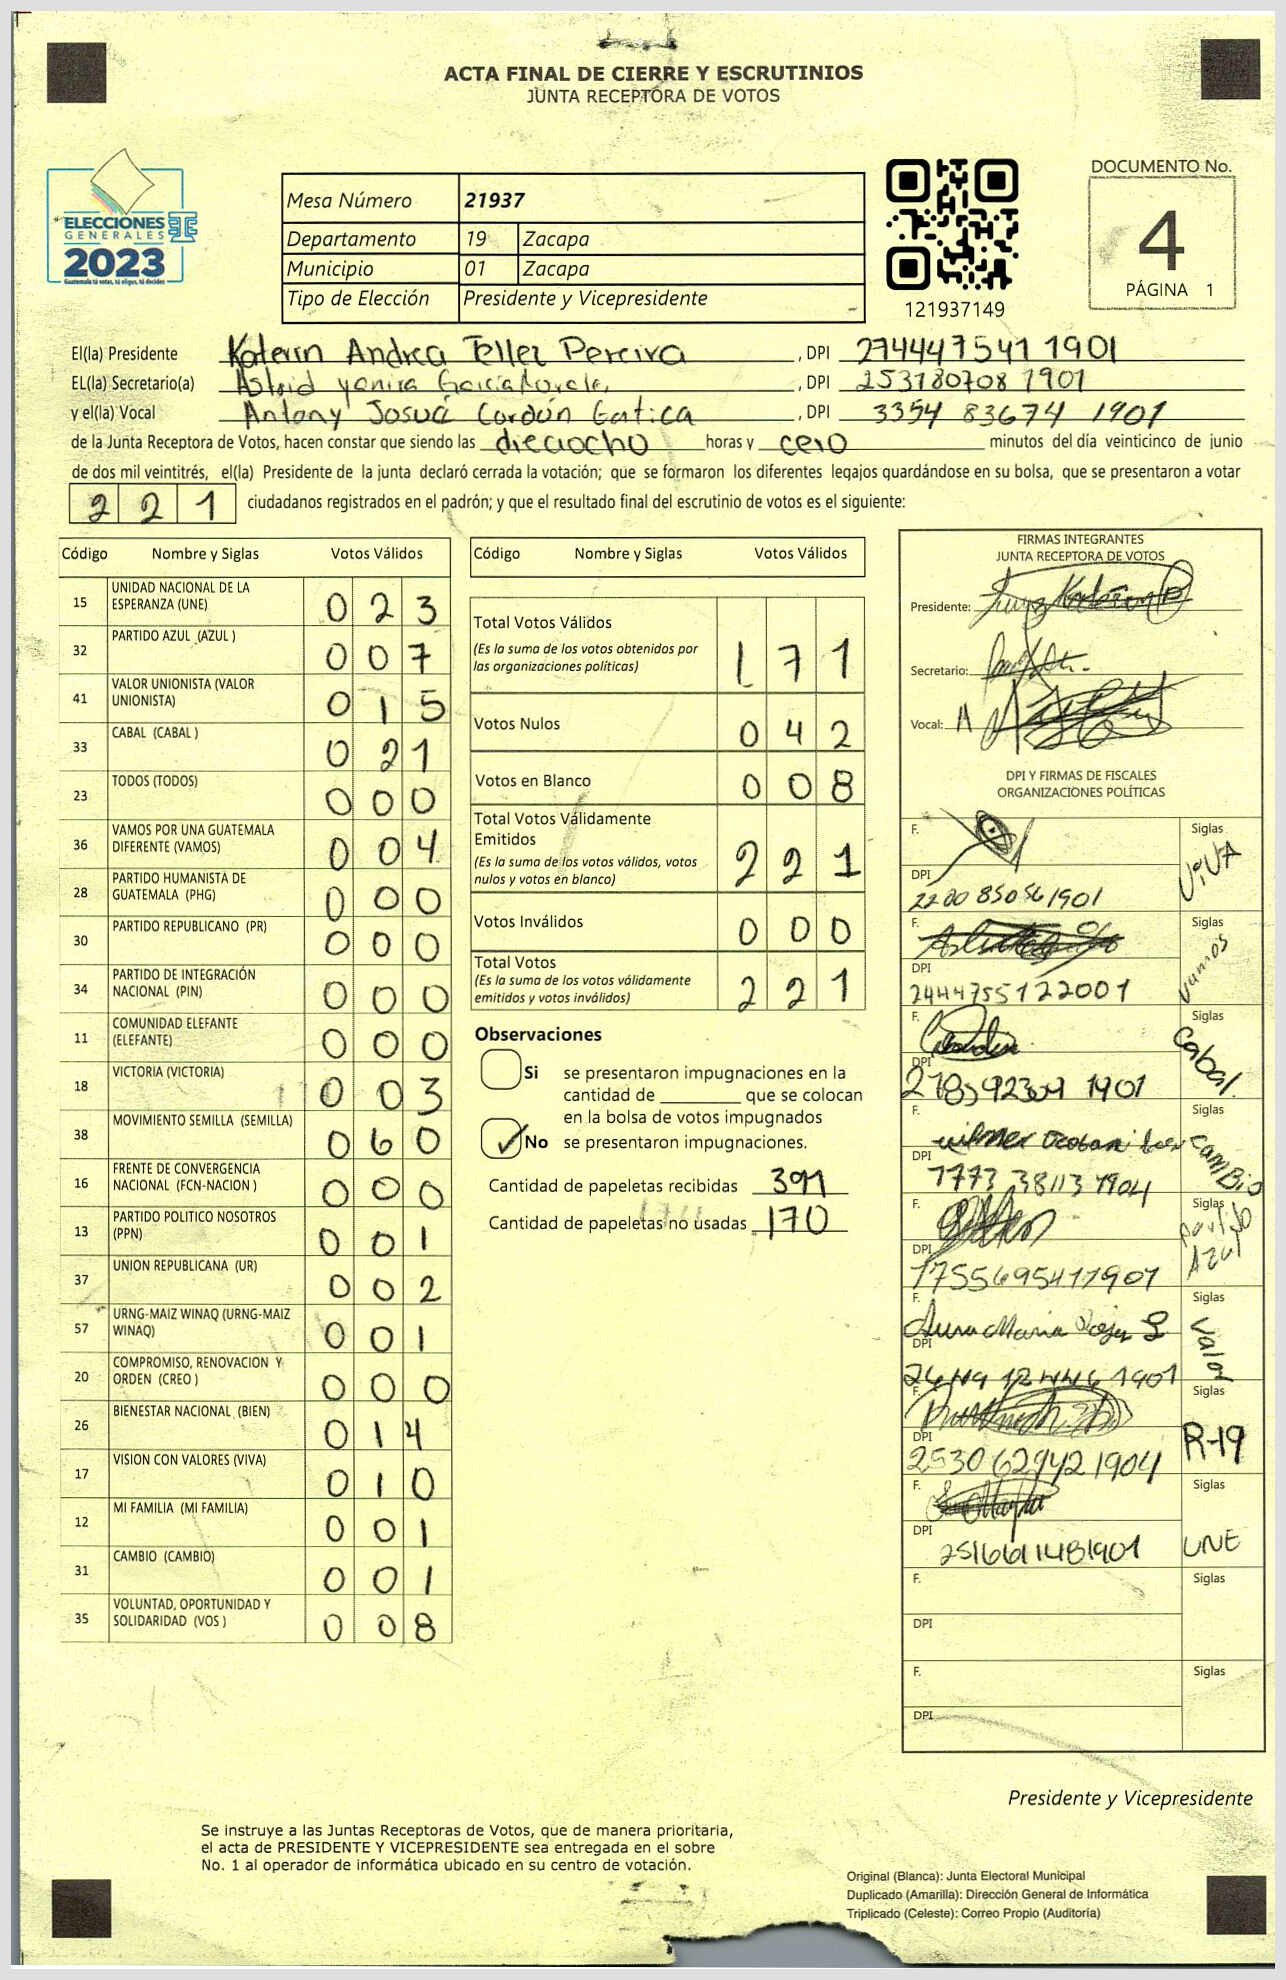 ACTA FINAL DE CIERRE Y ESCRUTINIOS
JUNTA RECEPTORA DE VOTOS
ELECCIONES
GENERALES
2023
Guatemala tú votas, tú eliges, tú decides
Mesa Número 21937
Departamento 19 Zacapa
Municipio 01 Zacapa
Tipo de Elección Presidente y Vicepresidente
121937149
DOCUMENTO No.
4
PÁGINA 1
El(la) Presidente Katerin Andrea Teller Pereira, DPI 274447541 1901
EL(la) Secretario(a) Astrid Yanira García, DPI 253180708 1901
y el(la) Vocal Antony Josué Cordón Gatica, DPI 3354 83674 1901
de la Junta Receptora de Votos, hacen constar que siendo las dieciocho horas y cero minutos del día veinticinco de junio
de dos mil veintitrés, el(la) Presidente de la junta declaró cerrada la votación; que se formaron los diferentes legajos guardándose en su bolsa, que se presentaron a votar
2 2 1 ciudadanos registrados en el padrón; y que el resultado final del escrutinio de votos es el siguiente:
Código Nombre y Siglas Votos Válidos
15 UNIDAD NACIONAL DE LA ESPERANZA (UNE) 0 2 3
32 PARTIDO AZUL (AZUL ) 0 0 7
41 VALOR UNIONISTA (VALOR UNIONISTA) 0 1 5
33 CABAL (CABAL ) 0 2 1
23 TODOS (TODOS) 0 0 0
36 VAMOS POR UNA GUATEMALA DIFERENTE (VAMOS) 0 0 4
28 PARTIDO HUMANISTA DE GUATEMALA (PHG) 0 0 0
30 PARTIDO REPUBLICANO (PR) 0 0 0
34 PARTIDO DE INTEGRACIÓN NACIONAL (PIN) 0 0 0
11 COMUNIDAD ELEFANTE (ELEFANTE) 0 0 0
18 VICTORIA (VICTORIA) 0 0 3
38 MOVIMIENTO SEMILLA (SEMILLA) 0 6 0
16 FRENTE DE CONVERGENCIA NACIONAL (FCN-NACION ) 0 0 0
13 PARTIDO POLITICO NOSOTROS (PPN) 0 0 1
37 UNION REPUBLICANA (UR) 0 0 2
57 URNG-MAIZ WINAQ (URNG-MAIZ WINAQ) 0 0 1
20 COMPROMISO, RENOVACION Y ORDEN (CREO ) 0 0 0
26 BIENESTAR NACIONAL (BIEN) 0 1 4
17 VISION CON VALORES (VIVA) 0 1 0
12 MI FAMILIA (MI FAMILIA) 0 0 1
31 CAMBIO (CAMBIO) 0 0 1
35 VOLUNTAD, OPORTUNIDAD Y SOLIDARIDAD (VOS ) 0 0 8
Código Nombre y Siglas Votos Válidos
Total Votos Válidos 1 7 1
(Es la suma de los votos obtenidos por
las organizaciones políticas)
Votos Nulos 0 4 2
Votos en Blanco 0 0 8
Total Votos Válidamente
Emitidos 2 2 1
(Es la suma de los votos válidos, votos
nulos y votos en blanco)
Votos Inválidos 0 0 0
Total Votos 2 2 1
(Es la suma de los votos válidamente
emitidos y votos inválidos)
Observaciones
Si se presentaron impugnaciones en la
cantidad de ________ que se colocan
en la bolsa de votos impugnados
No se presentaron impugnaciones.
Cantidad de papeletas recibidas 391
Cantidad de papeletas no usadas 170
FIRMAS INTEGRANTES
JUNTA RECEPTORA DE VOTOS
Presidente:
Secretario:
Vocal:
DPI Y FIRMAS DE FISCALES
ORGANIZACIONES POLÍTICAS
F. Siglas VIVA
DPI 2200 85056 1901
F. Siglas Vamos
DPI 2444755122001
F. Siglas Cabal
DPI 1901
F. Siglas CAMBIO
DPI 1904
F. Siglas Partido Azul
DPI 1755695411901
F. Aura Maria Siglas Valor
DPI 1901
F. Siglas R-19
DPI 2530 62942 1904
F. Siglas UNE
DPI 2516611481901
F. Siglas
DPI
F. Siglas
DPI
Presidente y Vicepresidente
Se instruye a las Juntas Receptoras de Votos, que de manera prioritaria,
el acta de PRESIDENTE Y VICEPRESIDENTE sea entregada en el sobre
No. 1 al operador de informática ubicado en su centro de votación.
Original (Blanca): Junta Electoral Municipal
Duplicado (Amarilla): Dirección General de Informática
Triplicado (Celeste): Correo Propio (Auditoría)